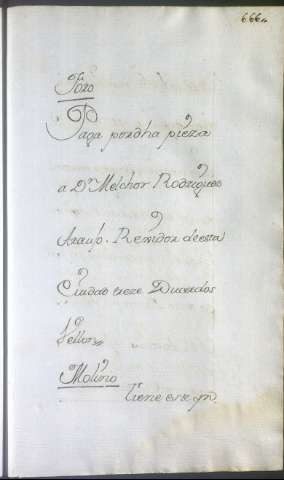 666
Foro
Paga por dha pieza
a Dn Melchor Rodriguez
Araujo. Rexidor de esta
Ciudad treze Ducados
Vellon
Molino
tiene este